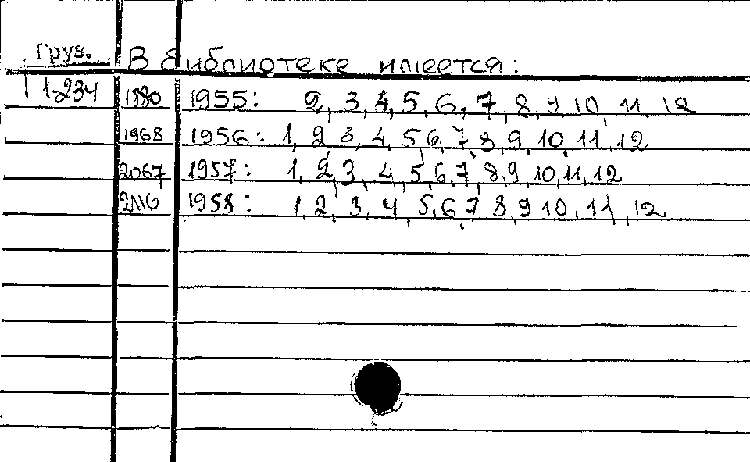 Груз. В библиотеке имеется:
1-234 1880 1955: 2, 3, 4, 5, 6, 7, 8, 9, 10, 11, 12
1968 1956: 1, 2, 3, 4, 5, 6, 7, 8, 9, 10, 11, 12
2067 1957: 1, 2, 3, 4, 5, 6, 7, 8, 9, 10, 11, 12
2116 1958: 1, 2, 3, 4, 5, 6, 7, 8, 9, 10, 11, 12